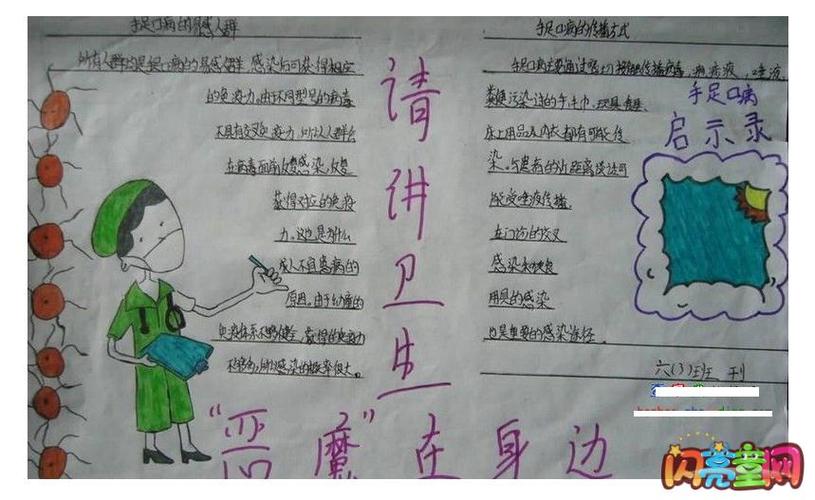 手足口病的易感人群
所有人群均是手足口病的易感人群 感染后可获得相应
的免疫力，由于不同型别的病毒
不具有交叉免疫力，所以人群会
在病毒面前反复感染，反复
获得对应的免疫
力。这也是为什么
成人不易患病的
原因。由于幼童的
免疫体系不够健全，获得的免疫力
不够高，所以感染的概率很大。
请讲卫生
"恶魔"在身边
手足口病的传播方式
手足口病主要通过密切接触传播病毒，唾液
粪便污染过的手、毛巾、玩具、食
床上用品及内衣都有可能传
染，与患病的近距离谈话可
能受唾液传播
在门诊的交叉
感染和饮食
用具的感染
也是重要的感染途径。
手足口病
启示录
六(3)班 刊
闪亮童网